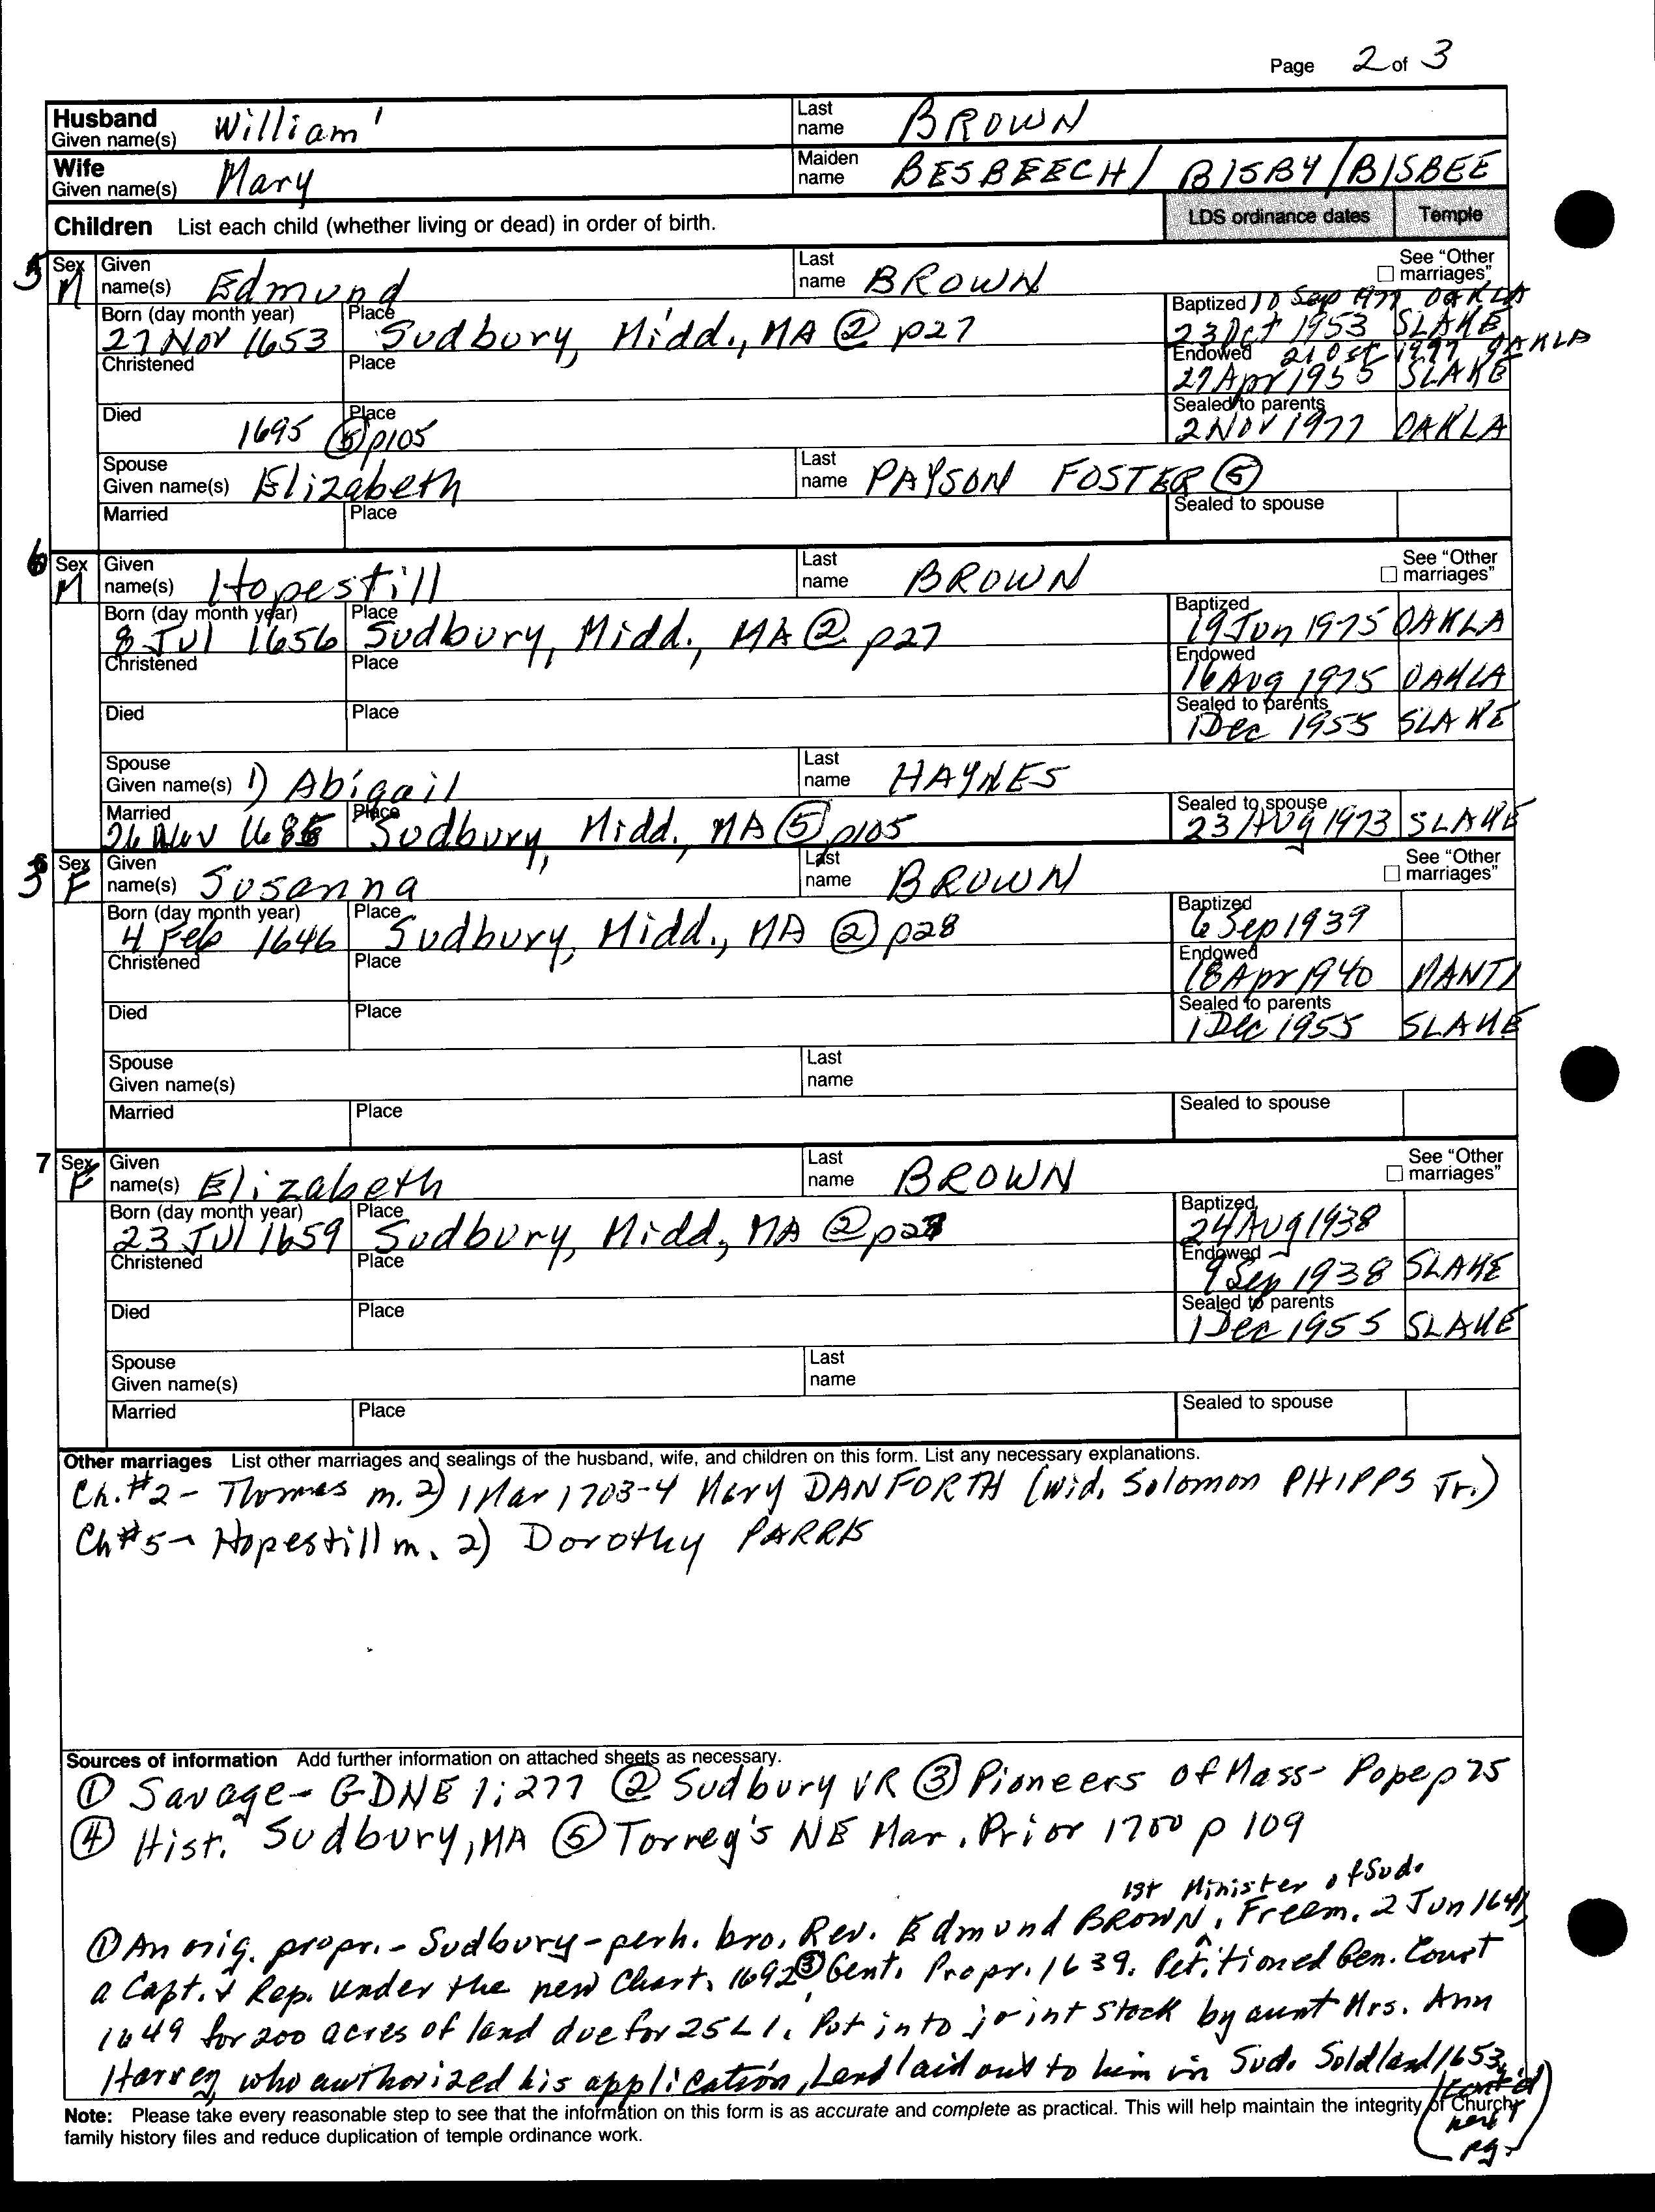 Page 2 of 3
Husband Given name(s) William' Last name BROWN
Wife Given name(s) Mary Maiden name BESBEECH / BISBY / BISBEE
Children List each child (whether living or dead) in order of birth. LDS ordinance dates Temple
5 Sex M Given name(s) Edmund Last name BROWN See "Other marriages"
Born (day month year) 27 Nov 1653 Place Sudbury, Midd., MA ② p27 Baptized 10 Sep 1977 OAKLA
23 Oct 1953 SLAKE
Christened Place Endowed 21 Oct 1977 OAKLA
27 Apr 1955 SLAKE
Died 1695 Place ⑤ p105 Sealed to parents 2 Nov 1977 OAKLA
Spouse Given name(s) Elizabeth Last name PAYSON FOSTER ⑤
Married Place Sealed to spouse
6 Sex M Given name(s) Hopestill Last name BROWN See "Other marriages"
Born (day month year) 8 Jul 1656 Place Sudbury, Midd., MA ② p27 Baptized 19 Jun 1975 OAKLA
Christened Place Endowed 16 Aug 1975 OAKLA
Died Place Sealed to parents 1 Dec 1955 SLAKE
Spouse Given name(s) 1) Abigail Last name HAYNES
Married 26 Nov Place Sudbury, Midd., MA ⑤ p105 Sealed to spouse 23 Aug 1973 SLAKE
3 Sex F Given name(s) Susanna Last name BROWN See "Other marriages"
Born (day month year) 4 Feb 1646 Place Sudbury, Midd., MA ② p28 Baptized 6 Sep 1939
Christened Place Endowed 18 Apr 1940 MANTI
Died Place Sealed to parents 1 Dec 1955 SLAKE
Spouse Given name(s) Last name
Married Place Sealed to spouse
7 Sex F Given name(s) Elizabeth Last name BROWN See "Other marriages"
Born (day month year) 23 Jul 1659 Place Sudbury, Midd, MA ② Baptized 24 Aug 1938
Christened Place Endowed 9 Sep 1938 SLAKE
Died Place Sealed to parents 1 Dec 1955 SLAKE
Spouse Given name(s) Last name
Married Place Sealed to spouse
Other marriages List other marriages and sealings of the husband, wife, and children on this form. List any necessary explanations.
Ch. #2 - Thomas m. 2) 1 Mar 1703-4 Mary DANFORTH (wid. Solomon PHIPPS Jr.)
Ch #5 - Hopestill m. 2) Dorothy PARRIS
Sources of information Add further information on attached sheets as necessary.
① Savage - GDNE 1:277 ② Sudbury VR ③ Pioneers of Mass - Pope p75
④ Hist. Sudbury, MA ⑤ Torrey's NE Mar. Prior 1700 p 109
1st Minister of Sud.
① An orig. propr. - Sudbury - perh. bro. Rev. Edmund BROWN, Freem. 2 Jun 1641,
a Capt. & Rep. under the new Chart. 1692 ③ Gent. Propr. 1639. Petitioned Gen. Court
1649 for 200 acres of land due for 25L 1. Put into joint stock by aunt Mrs. Ann
Harvey who authorized his application, Land laid out to him in Sud. Sold land 1653,
(Cont'd next pg.)
Note: Please take every reasonable step to see that the information on this form is as accurate and complete as practical. This will help maintain the integrity of Church
family history files and reduce duplication of temple ordinance work.